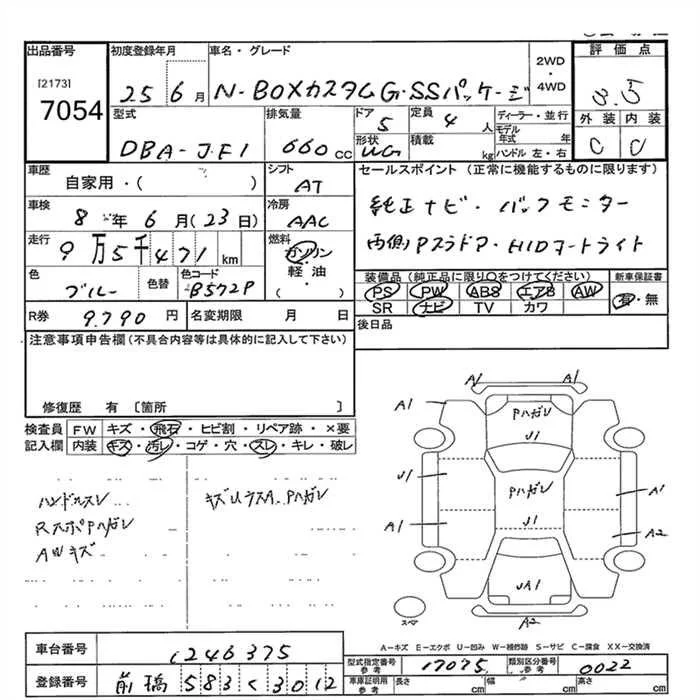 出品番号 初度登録年月 車名・グレード 2WD・4WD 評価点
[2173]
7054
25 6月 N-BOXカスタムG・SSパッケージ 3.5
型式 排気量 ドア 定員 ディーラー・並行 外装 内装
DBA-JF1 660cc 5 4人 モデル年式 年
形状 積載 kg ハンドル 左・右 C C
WG
車歴 シフト セールスポイント (正常に機能するものに限ります)
自家用・( ) AT
車検 冷房 純正ナビ・バックモニター
8年6月(23日) AAC
走行 燃料 両側Pスラドア・HIDヘッドライト
9万5千471km ガソリン
軽油
( )
色 色替 色コード 装備品(純正品に限り○をつけてください) 新車保証書
ブルー B572P PS PW ABS エアB AW 有・無
SR ナビ TV カワ
R券 9,790円 名変期限 月 日 後日品
注意事項申告欄(不具合内容等は具体的に記入して下さい)
修復歴 有 [箇所 ]
検査員 FW キズ・飛石・ヒビ割・リペア跡・×要
記入欄 内装 キズ・汚レ・コゲ・穴・スレ・キレ・破レ
ハンドルスレ キズUウスA、Pハガレ
RスポPハガレ
AWキズ
A1 A1
A1 Pハガレ
U1
U1 Pハガレ A1
A1 U1 A2
UA1
スペア A2
A-キズ E-エクボ U-凹み W-補修跡 S-サビ C-腐食 XX-交換済
車台番号 1246375
型式指定番号 参考 17075 類別区分番号 参考 0022
登録番号 前橋 583 く 3012
車庫証明用 参考 長さ cm 幅 cm 高さ cm